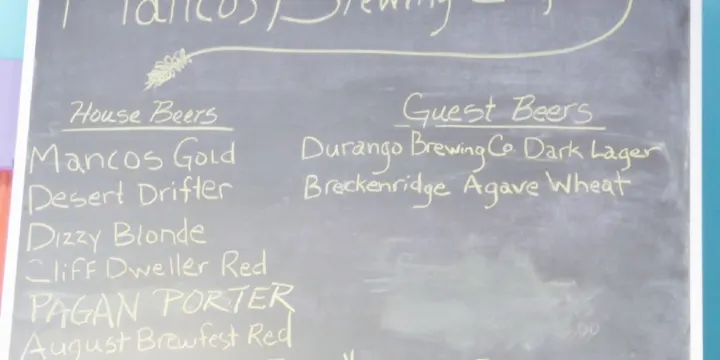 Mancos Brewing
House Beers
Mancos Gold
Desert Drifter
Dizzy Blonde
Cliff Dweller Red
PAGAN PORTER
August Brewfest Red
Guest Beers
Durango Brewing Co. Dark Lager
Breckenridge Agave Wheat